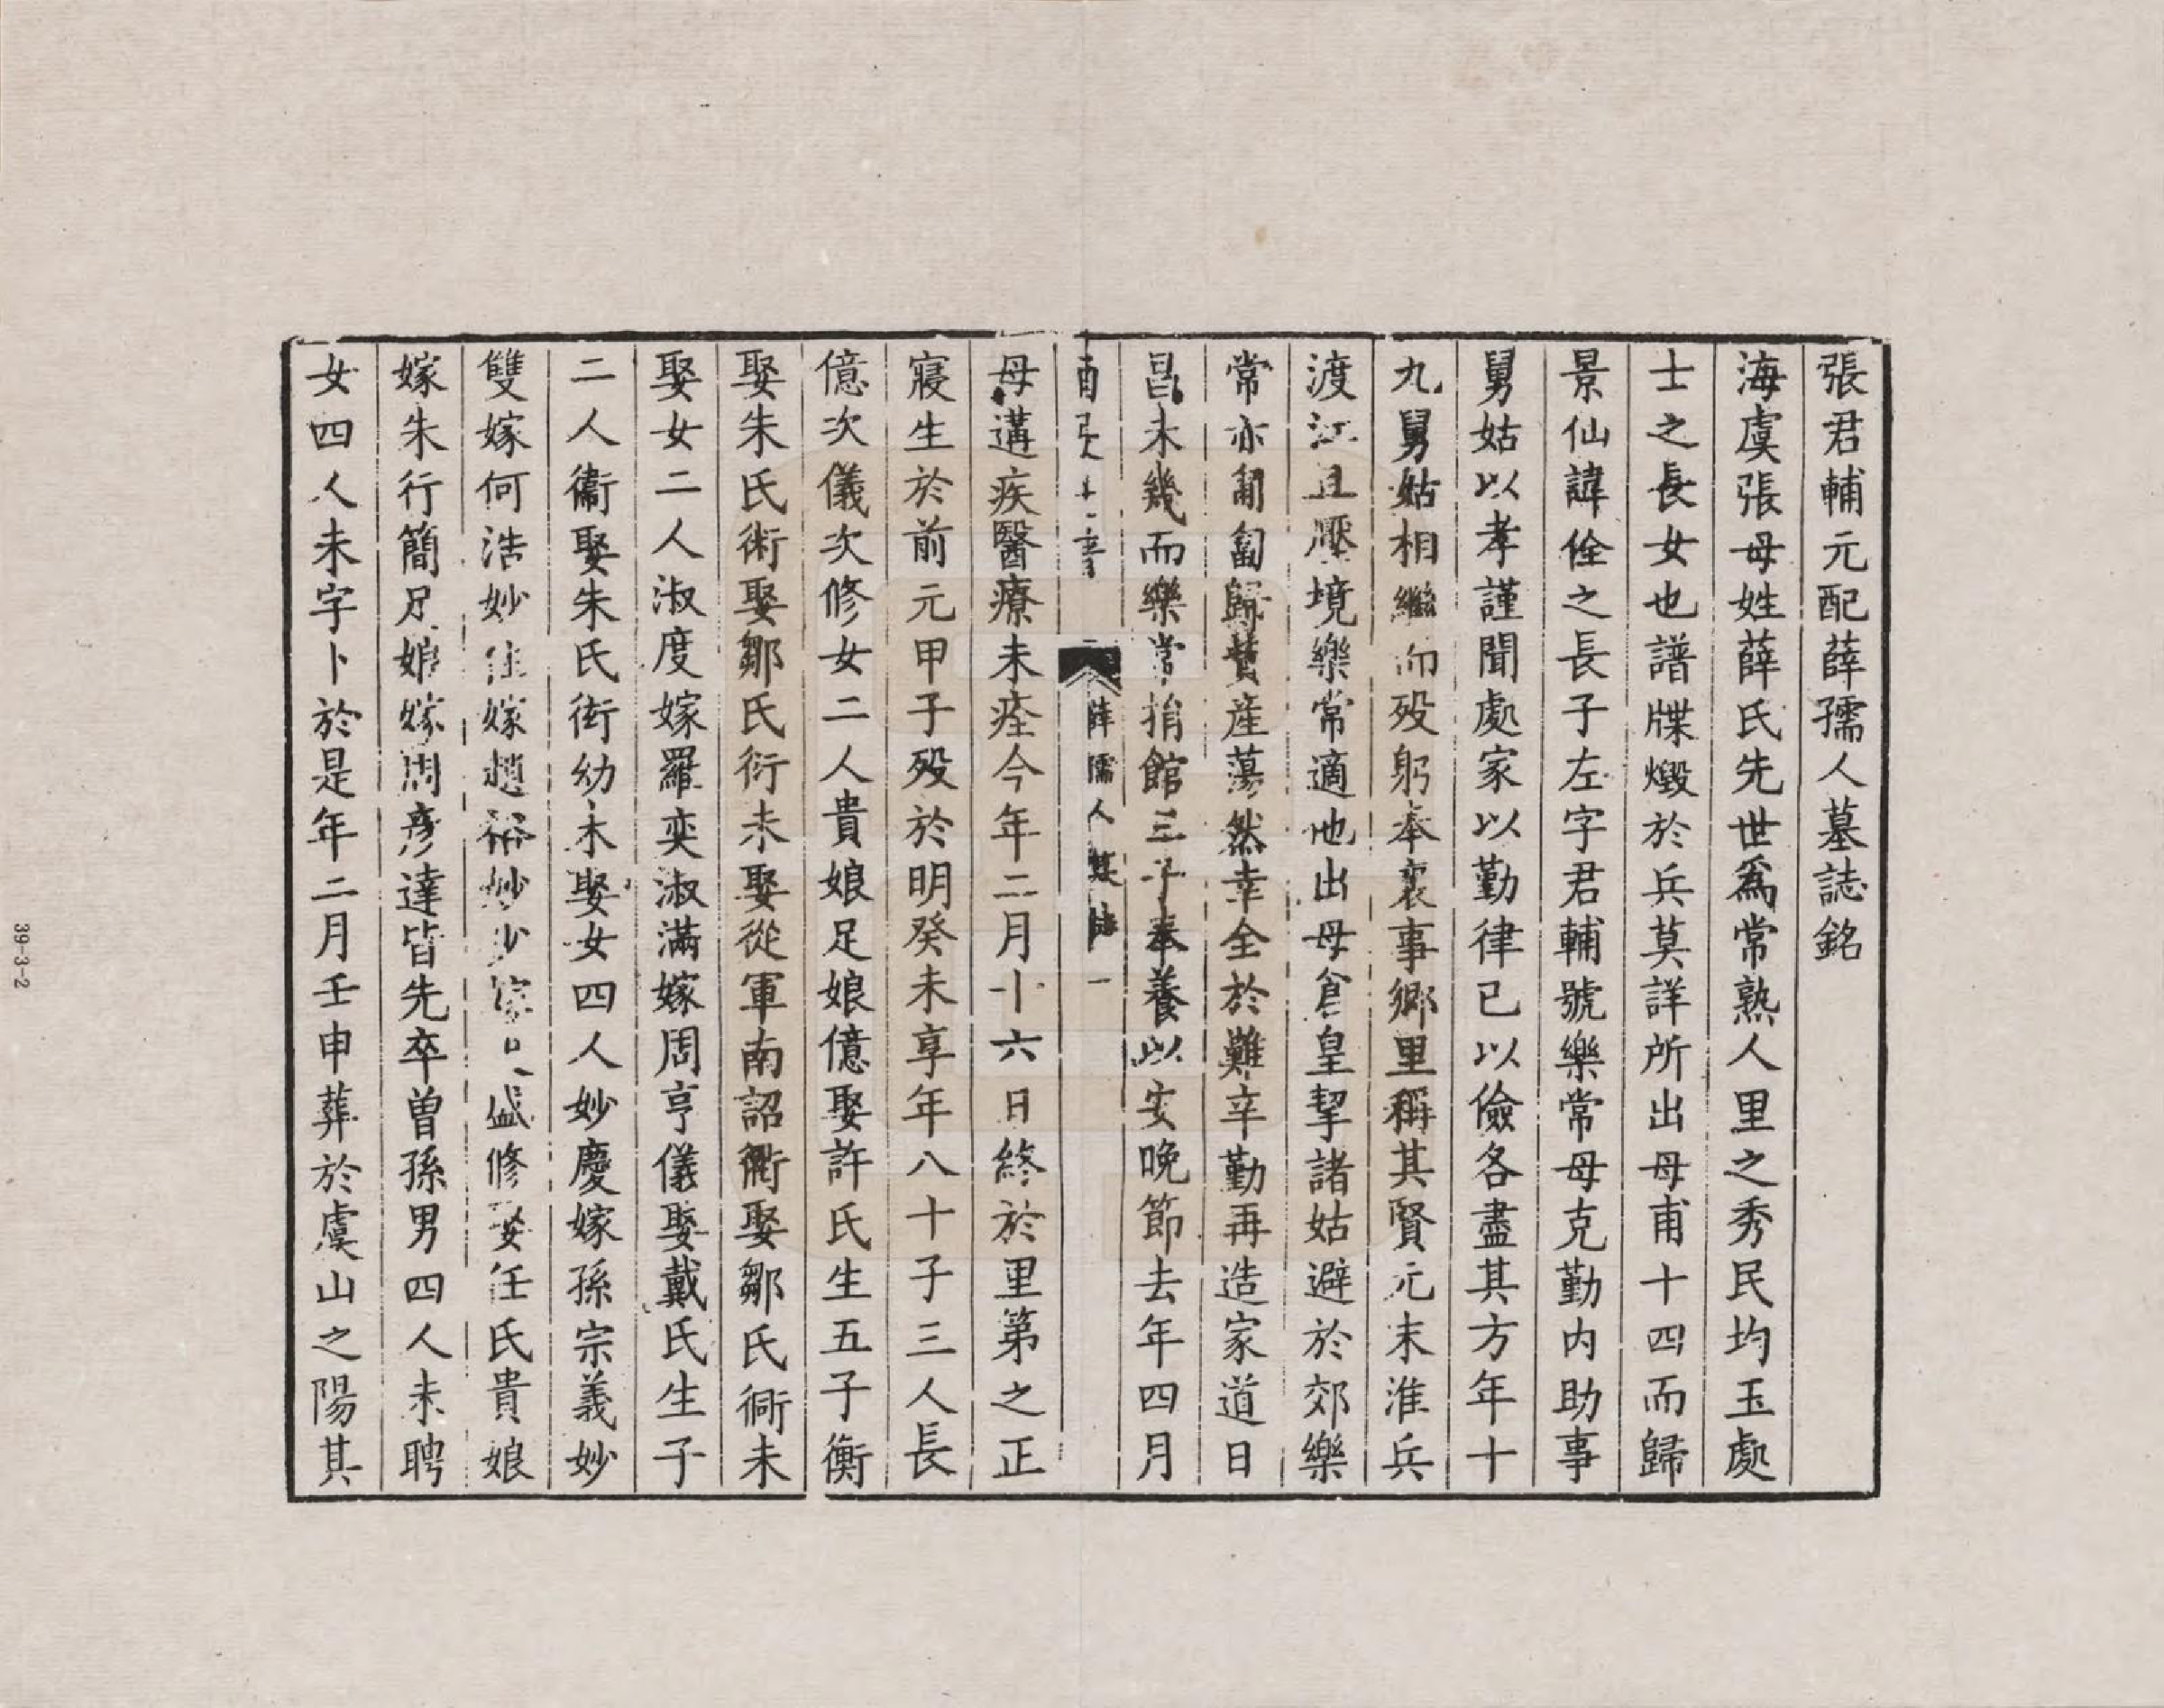 張君輔元配薛孺人墓誌銘
海虞張母姓薛氏先世爲常熟人里之秀民均玉處
士之長女也譜牒燬於兵莫詳所出母甫十四而歸
景仙諱佺之長子左字君輔號樂常母克勤内助事
舅姑以孝謹聞處家以勤律已以儉各盡其方年十
九舅姑相繼而殁躬奉襄事鄉里稱其賢元末淮兵
渡江且壓境樂常適他出母倉皇挈諸姑避於郊樂
常亦匍匐歸貲産蕩然幸全於難辛勤再造家道日
昌未幾而樂常捐館三子奉養以安晚節去年四月
薛孺人墓誌 一
母遘疾醫療未痊今年二月十六日終於里第之正
寢生於前元甲子殁於明癸未享年八十子三人長
億次儀次修女二人貴娘足娘億娶許氏生五子衡
娶朱氏術娶鄒氏衍未娶從軍南詔衢娶鄒氏衕未
娶女二人淑度嫁羅奕淑滿嫁周亨儀娶戴氏生子
二人衞娶朱氏街幼未娶女四人妙慶嫁孫宗義妙
雙嫁何浩妙嫁趙裕妙盛修娶任氏貴娘
嫁朱行簡足娘嫁周彥達皆先卒曾孫男四人未聘
女四人未字卜於是年二月壬申葬於虞山之陽其
39-3-2